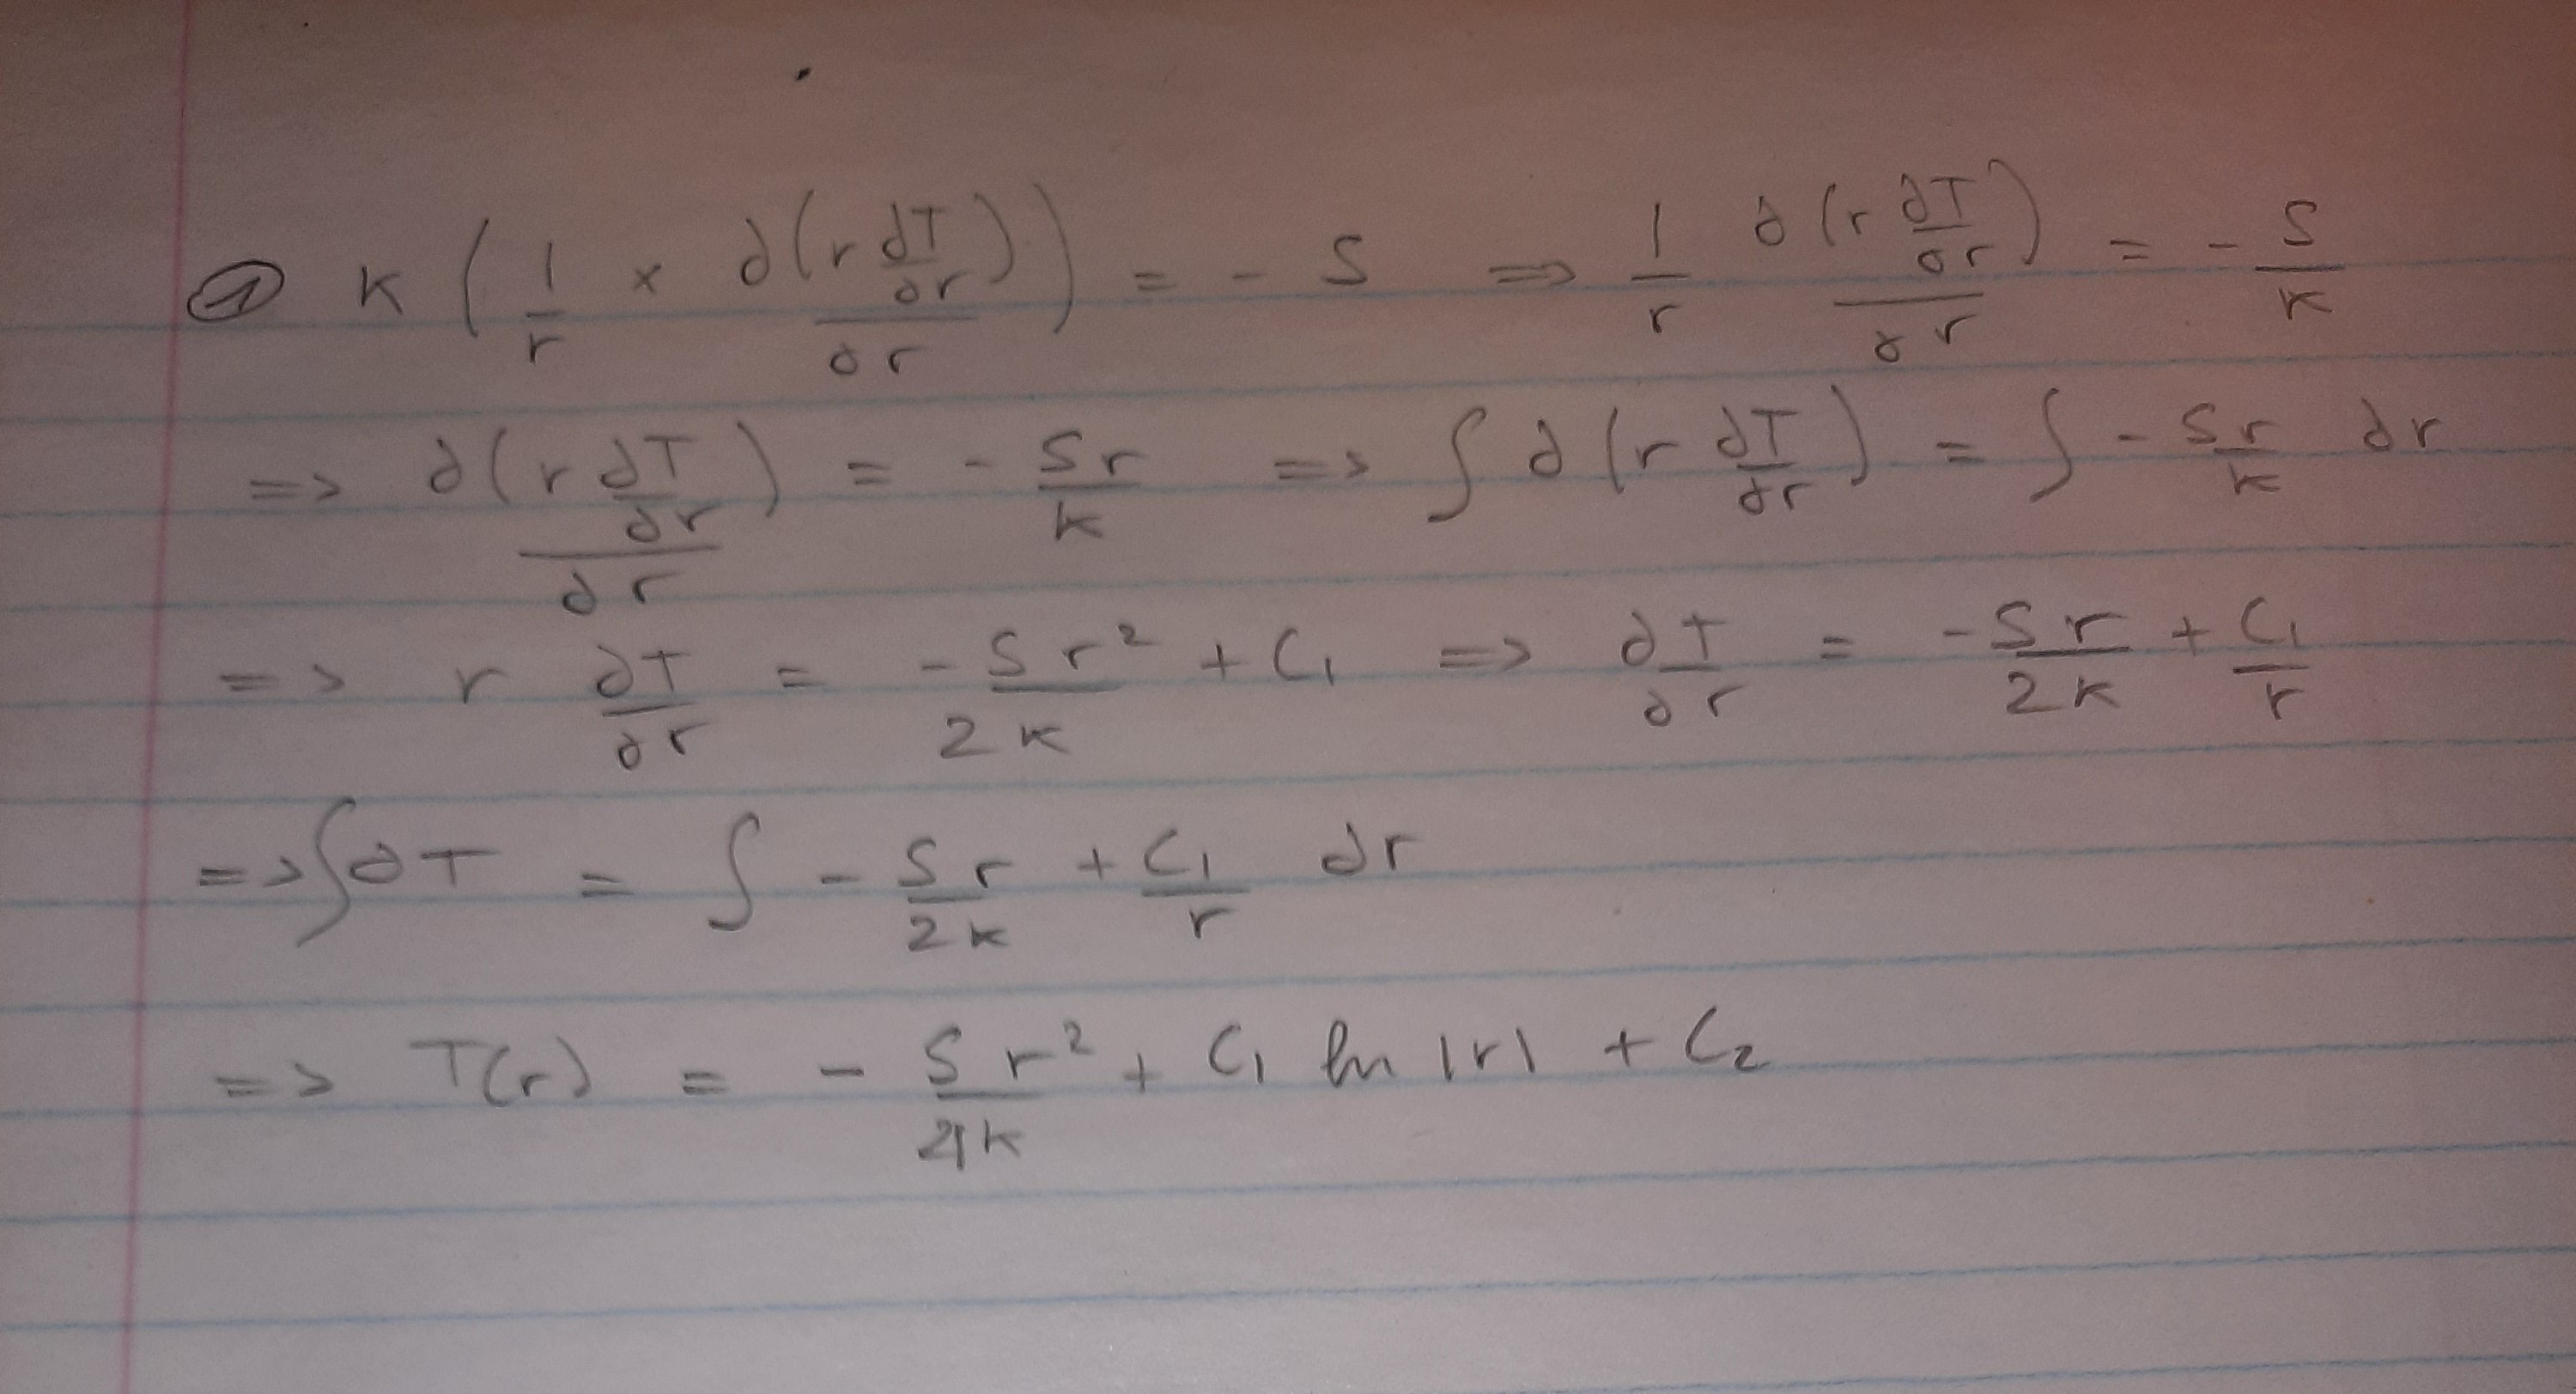 ① K ( 1/r × ∂(r ∂T/∂r)/∂r ) = - S => 1/r ∂(r ∂T/∂r)/∂r = - S/K
=> ∂(r ∂T/∂r)/∂r = - Sr/K => ∫ ∂(r ∂T/∂r) = ∫ - Sr/K ∂r
=> r ∂T/∂r = - Sr²/2K + C₁ => ∂T/∂r = - Sr/2K + C₁/r
=> ∫ ∂T = ∫ - Sr/2K + C₁/r ∂r
=> T(r) = - Sr²/4K + C₁ ln |r| + C₂